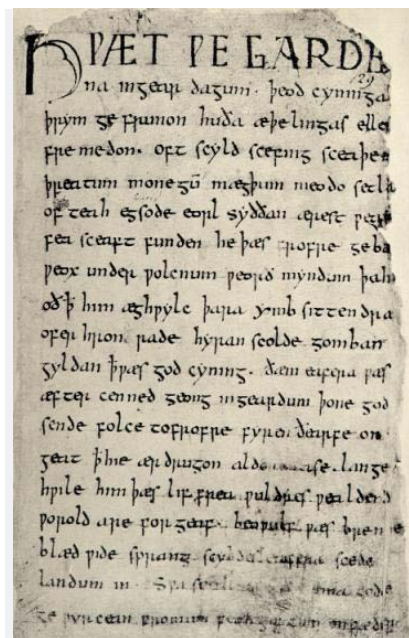 HǷÆT ǷE GARDE
na ingear dagum. þeod cyninga
þrym ge frunon huða æþelingas elle
fre medon. oft scyld scefing sceaþe
þreatum monegū mægþum meodo setla
of teah egsode eorl syððan ærest ƿea
fea sceaft funden he þæs frofre geba
ƿeox under ƿolcnum ƿeorð myndum þah
oð ꝥ him æghƿylc þara ymb sittendra
ofer hron rade hyran scolde gomban
gyldan ꝥ ƿæs god cyning. ðæm eafera ƿæs
æfter cenned geong ingeardum þone god
sende folce tofrofre fyren ðearfe on
geat ꝥ hie ær drugon aldor ase. lange
hƿile him þæs lif frea ƿuldres ƿealdend
ƿorold are for geaf. beoƿulf ƿæs breme
blæd ƿide sprang scyldes eafera scede
landum in. Sƿa guma gode
ge ƿyrcean fromum feoh giftum onfæder